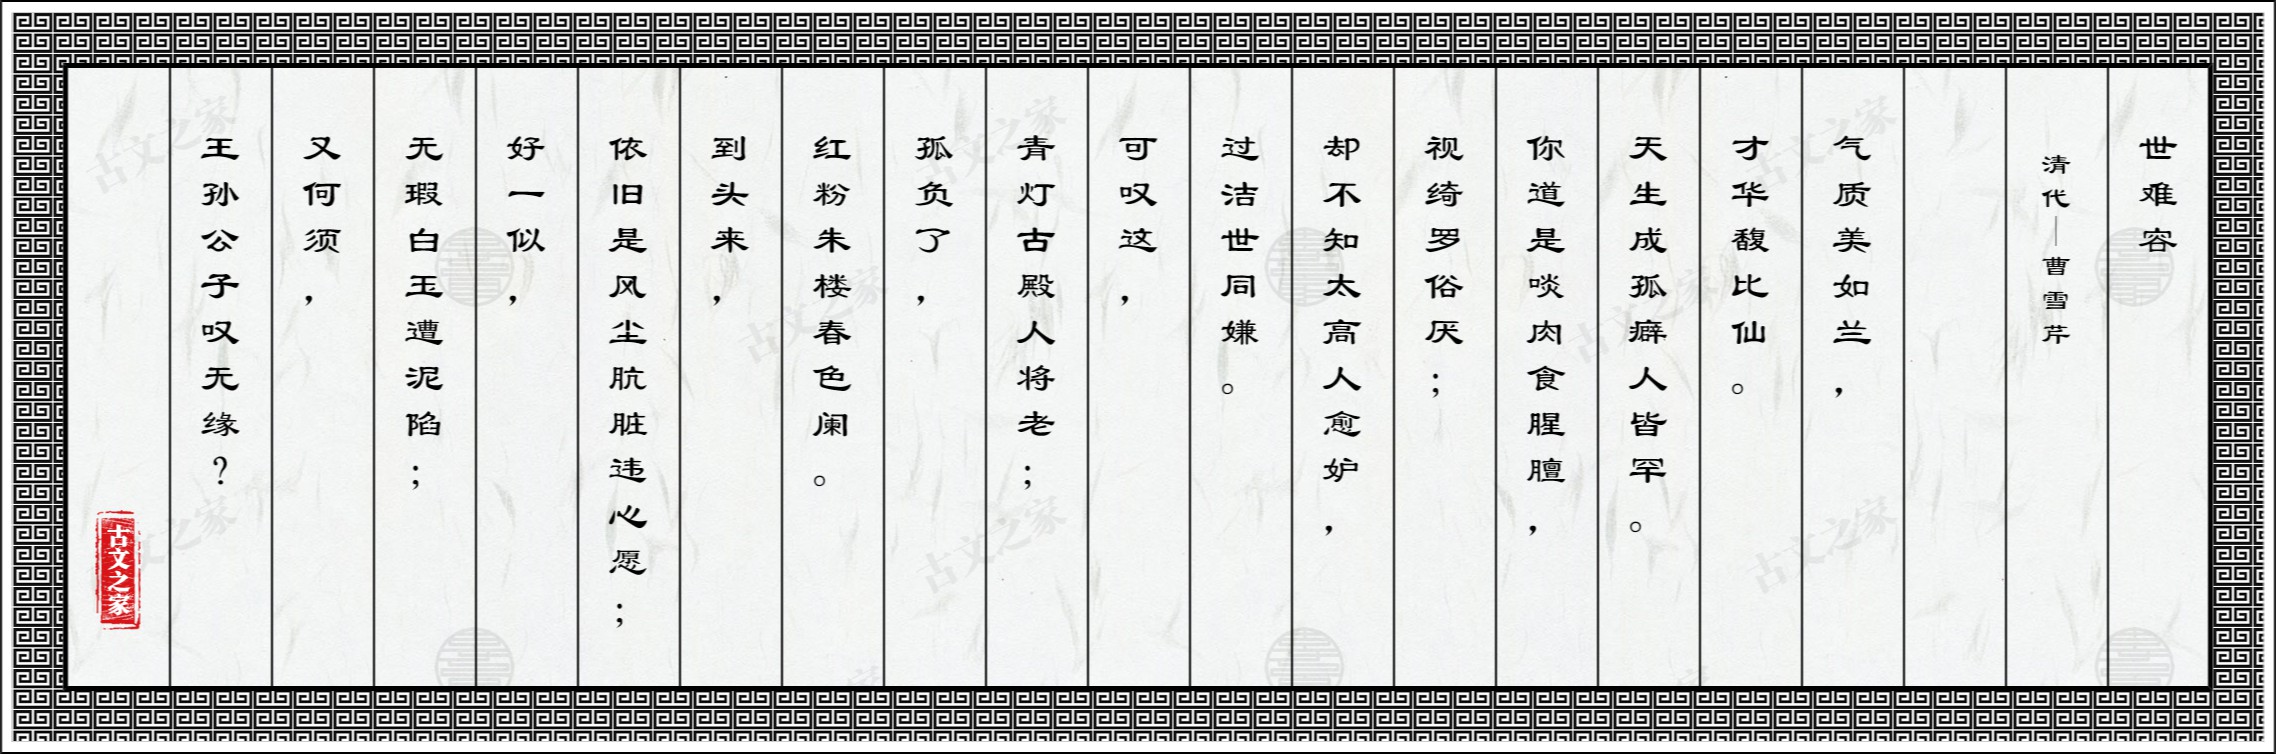 世难容
清代—曹雪芹
气质美如兰，
才华馥比仙。
天生成孤癖人皆罕。
你道是啖肉食腥膻，
视绮罗俗厌；
却不知太高人愈妒，
过洁世同嫌。
可叹这，
青灯古殿人将老；
孤负了，
红粉朱楼春色阑。
到头来，
依旧是风尘肮脏违心愿；
好一似，
无瑕白玉遭泥陷；
又何须，
王孙公子叹无缘？
古文之家